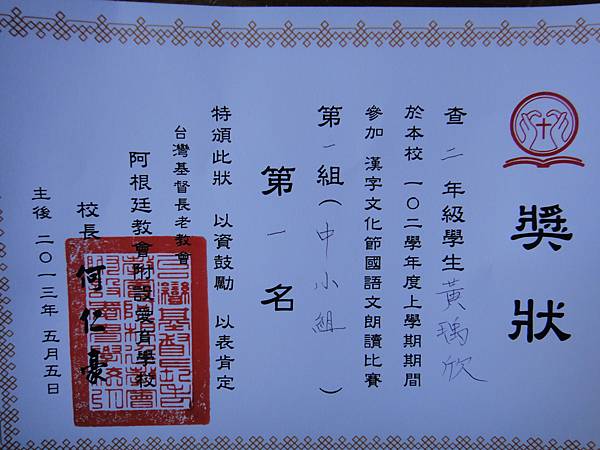 獎狀
查 二 年級學生 黃瑀欣
於本校 一０二學年度上學期期間
參加 漢字文化節國語文朗讀比賽
第一組（中小組）
第一名
特頒此狀 以資鼓勵 以表肯定
台灣基督長老教會
阿根廷教會附設愛育學校
校長 何仁豪
主後 二０一三年 五月五日